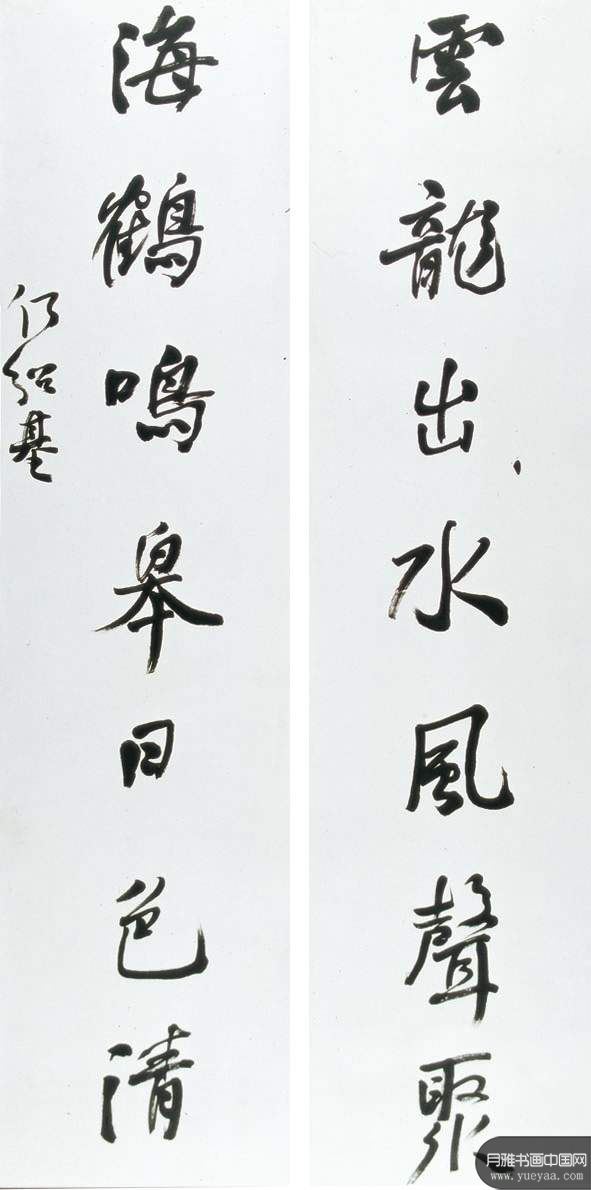 雲龍出水風聲聚
海鶴鳴皋日色清
何紹基
月雅书画中国网
www.yueyaa.com